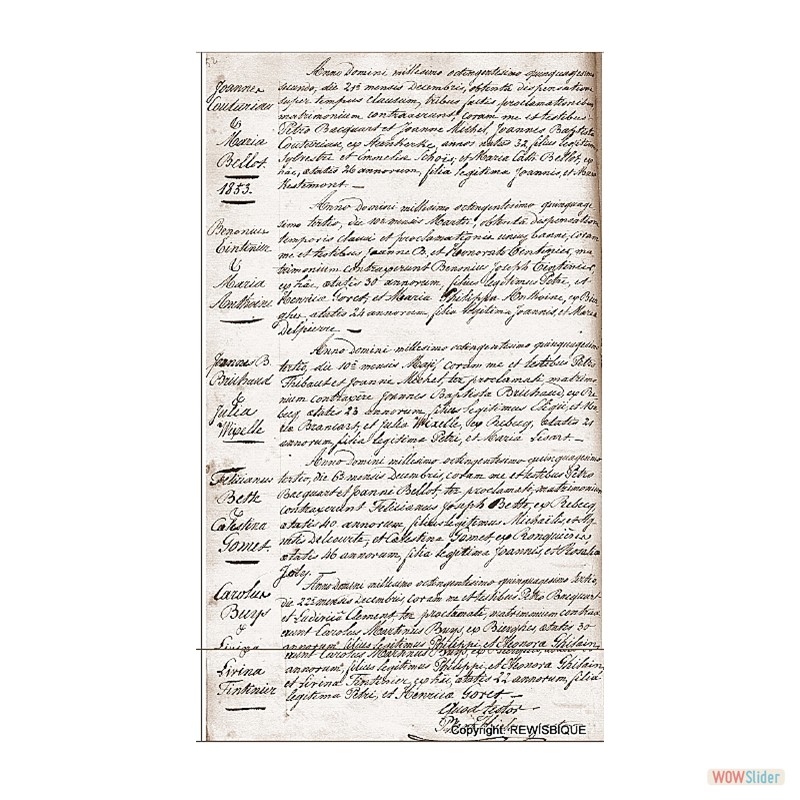 Joannes
Couturiau
&
Maria
Bellot.
1853.
Anno Domini millesimo octingentesimo quinquagesimo
secundo, die 29ª mensis Decembris, obtentâ dispensatione
super tempus clausum, tribus factis proclamationibus
matrimonium contraxerunt, coram me et testibus
Petro Bacquart et Joanne Michel, Joannes Baptista
Couturiau, ex Steenkerke, annos natus 32, filius legitimus
Sylvestri et Amelia Schois, et Maria Cath. Bellot, ex
hâc, ætatis 26 annorum, filia legitima Joannis, et Maria
Kestemont.
Benonius
Tintinier
&
Maria
Anthoine
Anno Domini millesimo octingentesimo quinquage-
simo tertio, die 10ª mensis Martii, obtentâ dispensatione
temporis clausi et proclamationis unius banni, coram
me et testibus Joanne B. et Honorato Tentinier, ma-
trimonium contraxerunt Benonius Joseph Tentinier,
ex hâc, ætatis 30 annorum, filius legitimus Petri, et
Henrica Goret, et Maria Philippa Anthoine, ex
ætatis 24 annorum, filia legitima Joannis, et Maria
Delpierre.
Joannes B.
Brichaud
&
Julia
Wixelle
Anno Domini millesimo octingentesimo quinquagesimo
tertio, die 10ª mensis Maji, coram me et testibus Petro
Thibaut et Joanne Michel, ter proclamati, matrimo-
nium contraxêre Joannes Baptista Brichaud, ex Re-
becq, ætatis 23 annorum, filius legitimus Eligii, et
Brancart, et Julia Wixelle, ex Rebecq, ætatis 21
annorum, filia legitima Petri, et Maria Lisart.
Felicianus
Beth
&
Cœlestina
Gomet.
Anno Domini millesimo octingentesimo quinquagesimo
tertio, die 6ª mensis Decembris, coram me et testibus Petro
Bacquart et Joanni Bellot, ter proclamati, matrimonium
contraxerunt Felicianus Joseph Beth, ex Rebecq,
ætatis 40 annorum, filius legitimus Michaëlis, et Ag-
netis Delcourte, et Cœlestina Gomet, ex Ronquières,
ætatis 46 annorum, filia legitima Joannis, et Rosalia
Joly.
Carolus
Buys
&
Livina
Anno Domini millesimo octingentesimo quinquagesimo tertio,
die 22ª mensis Decembris, coram me et testibus Petro Bacquart
et Ludovico Clement, ter proclamati, matrimonium contrax-
erunt Carolus Martinus Buys, ex Burghes, ætatis 30
annorum, filius legitimus Philippi, et Eleonora Ghilain,
erunt Carolus Martinus Buys
Livina
Tintinier
annorum, filius legitimus Philippi, et Eleonora Ghilain,
et Livina Tintinier, ex hâc, ætatis 22 annorum, filia
legitima Petri, et Henrica Goret.
Quod testor
Copyright: REWISBIQUE
WOWSlider